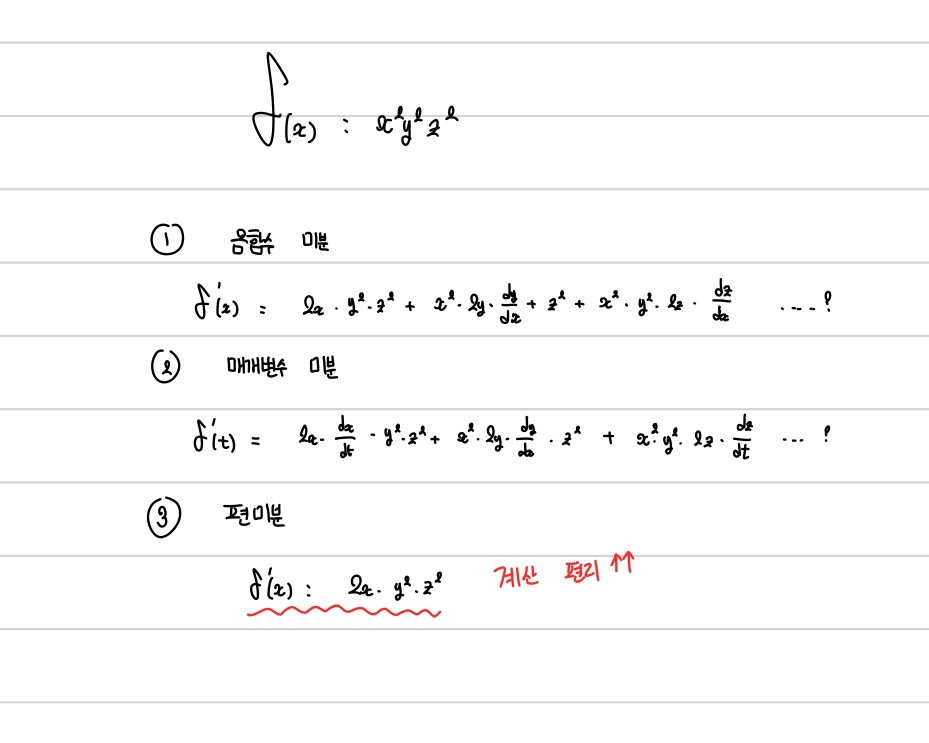 f(x) : x²y²z²
① 음함수 미분
f'(x) = 2x · y² · z² + x² · 2y · dy/dx + z² + x² · y² · 2z · dz/dx ....?
② 매개변수 미분
f'(t) = 2x · dx/dt · y² · z² + x² · 2y · dy/dx · z² + x² · y² · 2z · dz/dt ... ?
③ 편미분
f'(x) : 2x · y² · z² 계산 편리 ↑↑